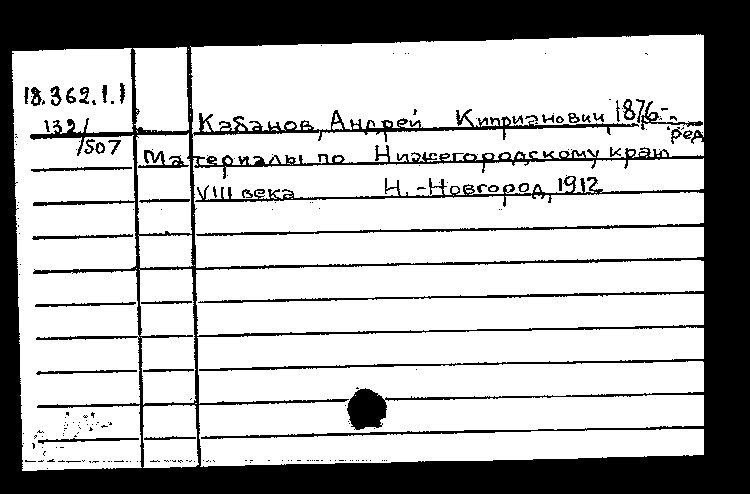 18.362.1.1
132/507
Кабанов, Андрей Киприанович, 1876-
ред
Материалы по Нижегородскому краю
VIII века Н.-Новгород, 1912